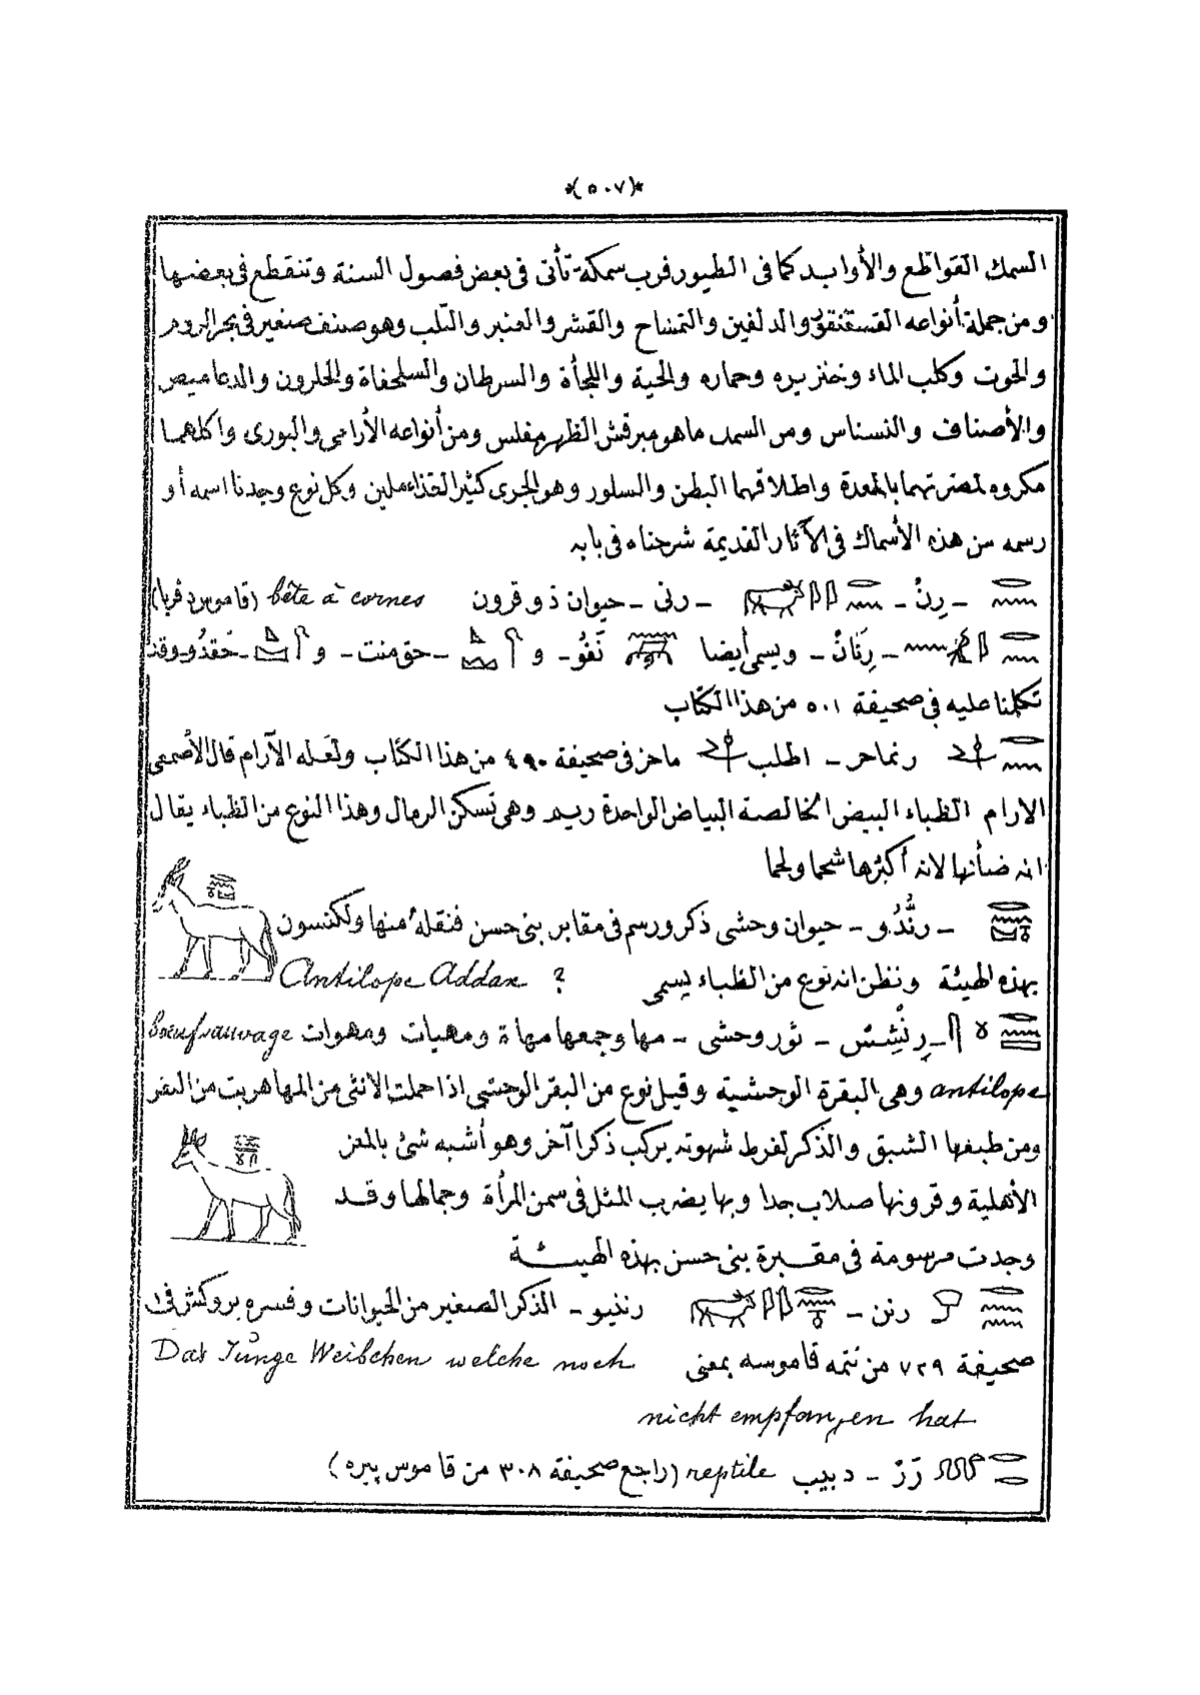 *(٥٠٧)*
السمك القواطع والأوابد كما فى الطيور فرب سمكة تأتى فى بعض فصول السنة وتنقطع فى بعضها
ومن جملة أنواعه القسقنقور والدلفين والتمساح والقشر والعنبر والتلب وهو صنف صغير فى بحر الروم
والحوت وكلب الماء وخنزيره وحماره والحية واللجأة والسرطان والسلحفاة والحلزون والدعاميص
والأصناف والنسناس ومن السمك ماهو مبرقش الظهر مفلس ومن أنواعه الأرامى والبورى واكلهما
مكروه لمضرتهما بالمعدة واطلاقهما البطن والسلور وهو الجرى كثير الغذاء ملين وكل نوع وجدنا اسمه أو
رسمه من هذه الأسماك فى الآثار القديمة شرحناه فى بابه
ـ رِنْ ـ ـ رنى ـ حيوان ذو قرون bête à cornes (قاموس
ـ رِنَانْ ـ ويسمى أيضا نَفُو ـ و ـ حق منت ـ و ـ وقد
تكلمنا عليه فى صحيفة ٥٠١ من هذا الكتاب
رنماحر ـ اطلب ماحز فى صحيفة ٤٩٠ من هذا الكتاب ولعله الآرام قال الأصمعى
الارام الظباء البيض الخالصة البياض الواحدة ريم وهى تسكن الرمال وهذا النوع من الظباء يقال
انه ضأنها لانه أكثرها شحما ولحما
ـ رنُّدُو ـ حيوان وحشى ذكر ورسم فى مقابر بنى حسن فنقله منها ولكنسون
بهذه الهيئة ونظن انه نوع من الظباء يسمى Antilope Addax ?
ـ رِنْشِسْ ـ ثور وحشى ـ مها وجمعها مهاة ومهيات ومهوات boeuf sauvage
antilope وهى البقرة الوحشية وقيل نوع من البقر الوحشى اذا حملت الانثى من المها هربت من البقر
ومن طبعها الشبق والذكر لفرط شهوته يركب ذكرا آخر وهو أشبه شئ بالمعز
الأهلية وقرونها صلاب جدا وبها يضرب المثل فى سمن المرأة وجمالها وقد
وجدت مرسومة فى مقبرة بنى حسن بهذه الهيئة
رنن ـ رننيو ـ الذكر الصغير من الحيوانات وفسره بروكش فى
صحيفة ٧٢٩ من تتمه قاموسه بمعنى Das Junge Weibchen welche noch
nicht empfangen hat
رَرْ ـ دبيب reptile (راجع صحيفة ٣٠٨ من قاموس پيره)